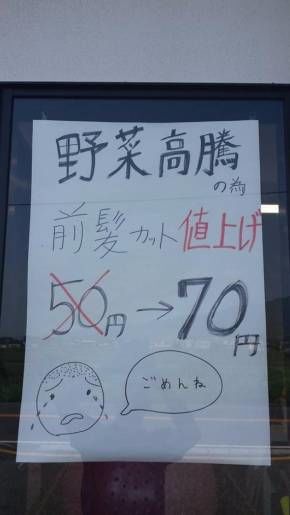 野菜高騰
の為
前髪カット値上げ
50円→70円
ごめんね